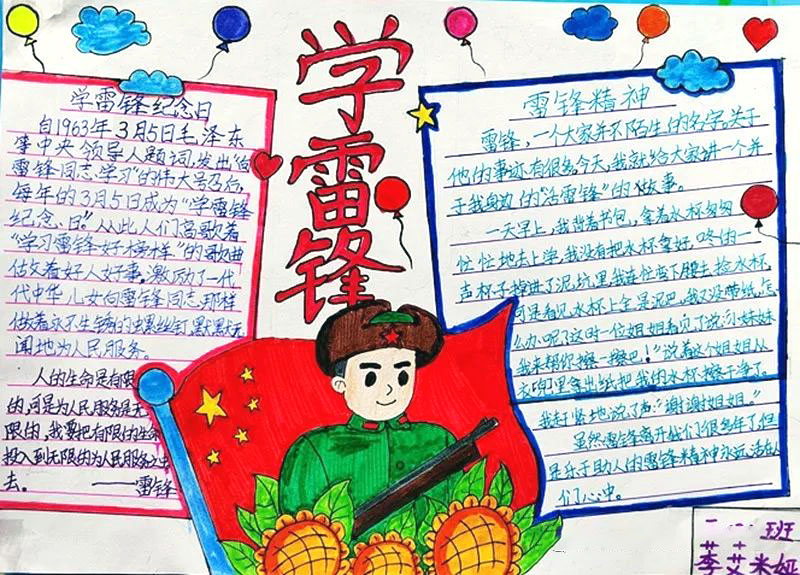 学雷锋
学雷锋纪念日
自1963年3月5日毛泽东
等中央领导人题词,发出"向
雷锋同志学习"的伟大号召后,
每年的3月5日成为"学雷锋
纪念日"。从此人们高歌着
"学习雷锋好榜样"的歌曲
做着好人好事。激励了一代
代中华儿女向雷锋同志那样
做着永不生锈的螺丝钉默默无
闻地为人民服务。
人的生命是有限
的,可是为人民服务是无
限的,我要把有限的生命
投入到无限的为人民服务之中
去。——雷锋
雷锋精神
雷锋,一个大家并不陌生的名字。关于
他的事迹有很多。今天,我就给大家讲一个并
于我身边的"活雷锋"的故事。
一天早上,我背着书包,拿着水杯匆匆
忙忙地去上学。我没有把水杯拿好,咚的一
声杯子掉进了泥坑里。我连忙弯下腰去捡水杯,
可是看见水杯上全是泥巴,我又没带纸,怎
么办呢?这时一位姐姐看见了说:小妹妹
我来帮你擦一擦吧!"说着这个姐姐从
衣兜里拿出纸把我的水杯擦干净了。
我赶紧地说了声:"谢谢姐姐。"
虽然雷锋离开我们很多年了但
是乐于助人的雷锋精神永远活在人
们心中。
班
李艾米娅